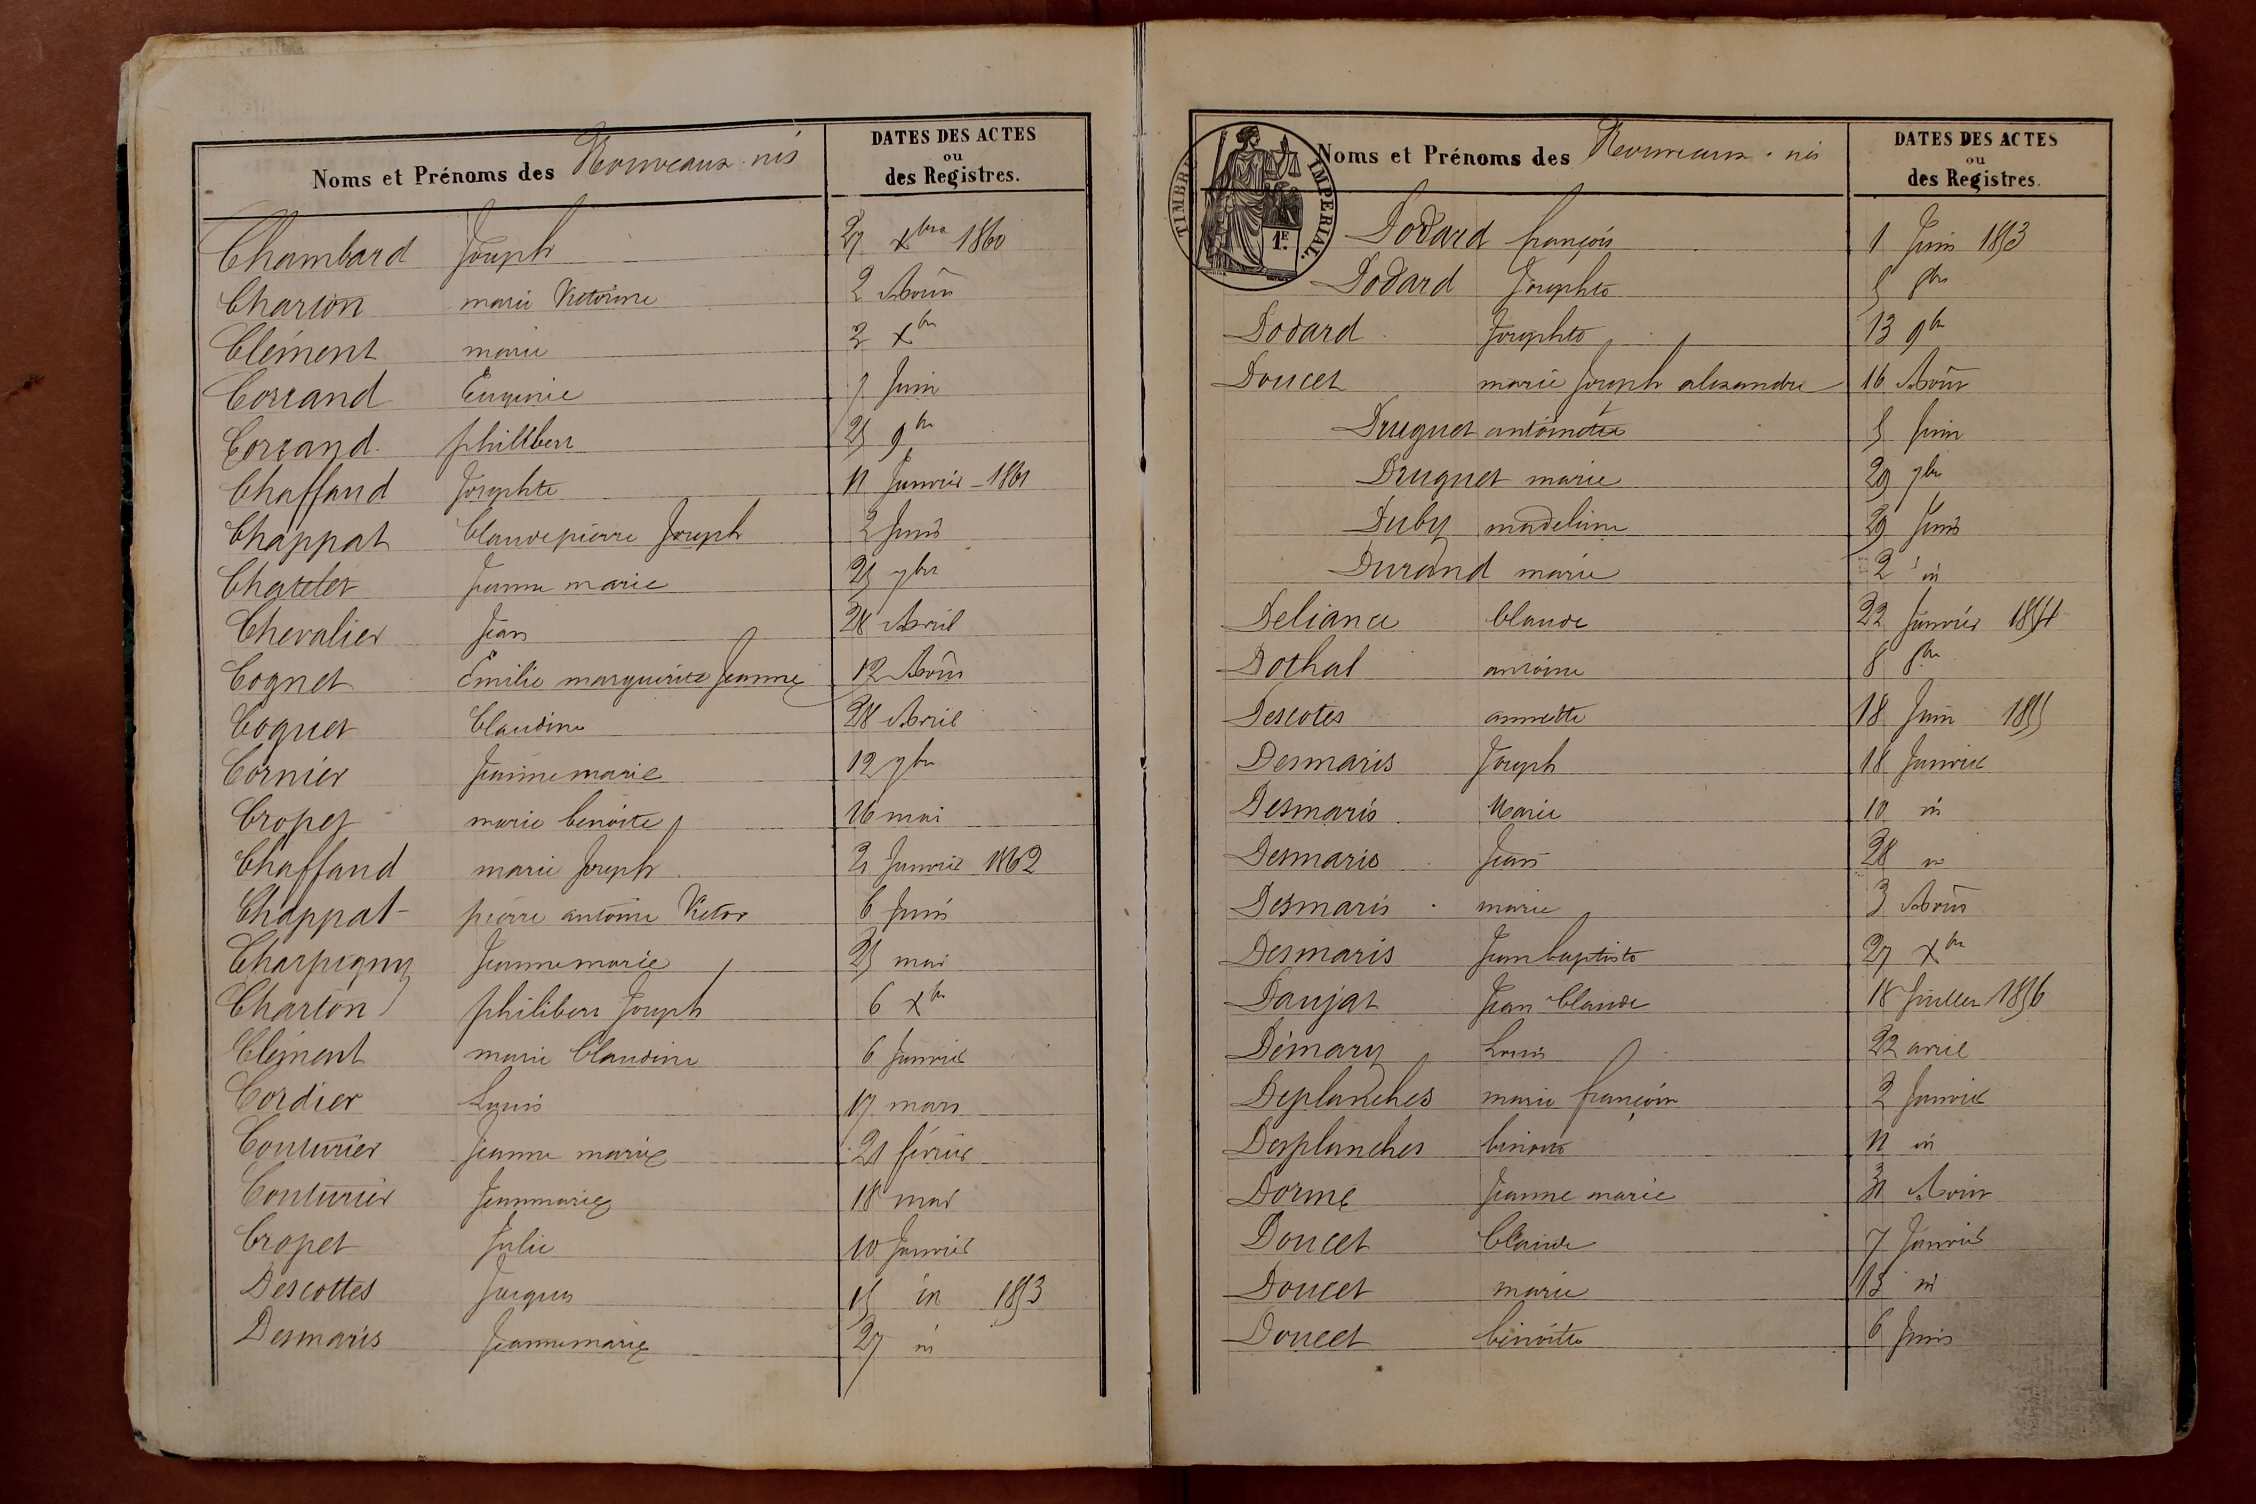 Noms et Prénoms des Nouveaux-nés
DATES DES ACTES
ou
des Registres.
Chambard Joseph 27 Xbre 1860
Charton marie Victorine 2 Août
Clément marie 2 Xbre
Corrand Eugénie 7 Juin
Corrand philibert 25 9bre
Chaffaud Josephte 11 Janvier 1861
Chappat Claude pierre Joseph 2 Juin
Chatelet Jeanne marie 25 7bre
Chevalier Jean 28 Avril
Cognet Emilie marguerite Jeanne 12 Août
Coquet Claudine 28 Avril
Cornier Jeanne marie 12 7bre
Cropet marie benoite 16 mai
Chaffaud marie Joseph 21 Janvier 1862
Chappat pierre antoine Victor 6 Juin
Charpigny Jeanne marie 25 mai
Charton philibert Joseph 6 Xbre
Clément marie Claudine 6 Janvier
Cordier Louis 17 mars
Couturier Jeanne marie 21 février
Couturier Jeanmarie 18 mai
Cropet Julie 10 Janvier
Descottes Jacques 15 id 1853
Desmaris Jeanne marie 27 id
TIMBRE IMPERIAL.
1E.
Noms et Prénoms des Nouveaux-nés
DATES DES ACTES
ou
des Registres.
Dodard françois 1 Juin 1853
Dodard Josephte 5
Dodard Josephte 13 9bre
Doucet marie Joseph alexandre 16 Août
Druguet antoinette 5 Juin
Druguet marie 29 7bre
Duby madeleine 29 Juin
Durand marie 2 id
Deliance Claude 22 Janvier 1854
Dothal antoine 8 8bre
Descotes annette 18 Juin 1855
Desmaris Joseph 18 Janvier
Desmaris Marie 10 id
Desmaris Jean 28 id
Desmaris marie 3 Août
Desmaris Jean baptiste 27 Xbre
Daujat Jean Claude 18 Juillet 1856
Démary Louis 22 avril
Deplanches marie françoise 2 Janvier
Desplanches benoite 11 id
Dorme Jeanne marie 31 Août
Doucet Claude 7 Janvier
Doucet marie 13 id
Doucet benoite 6 Juin